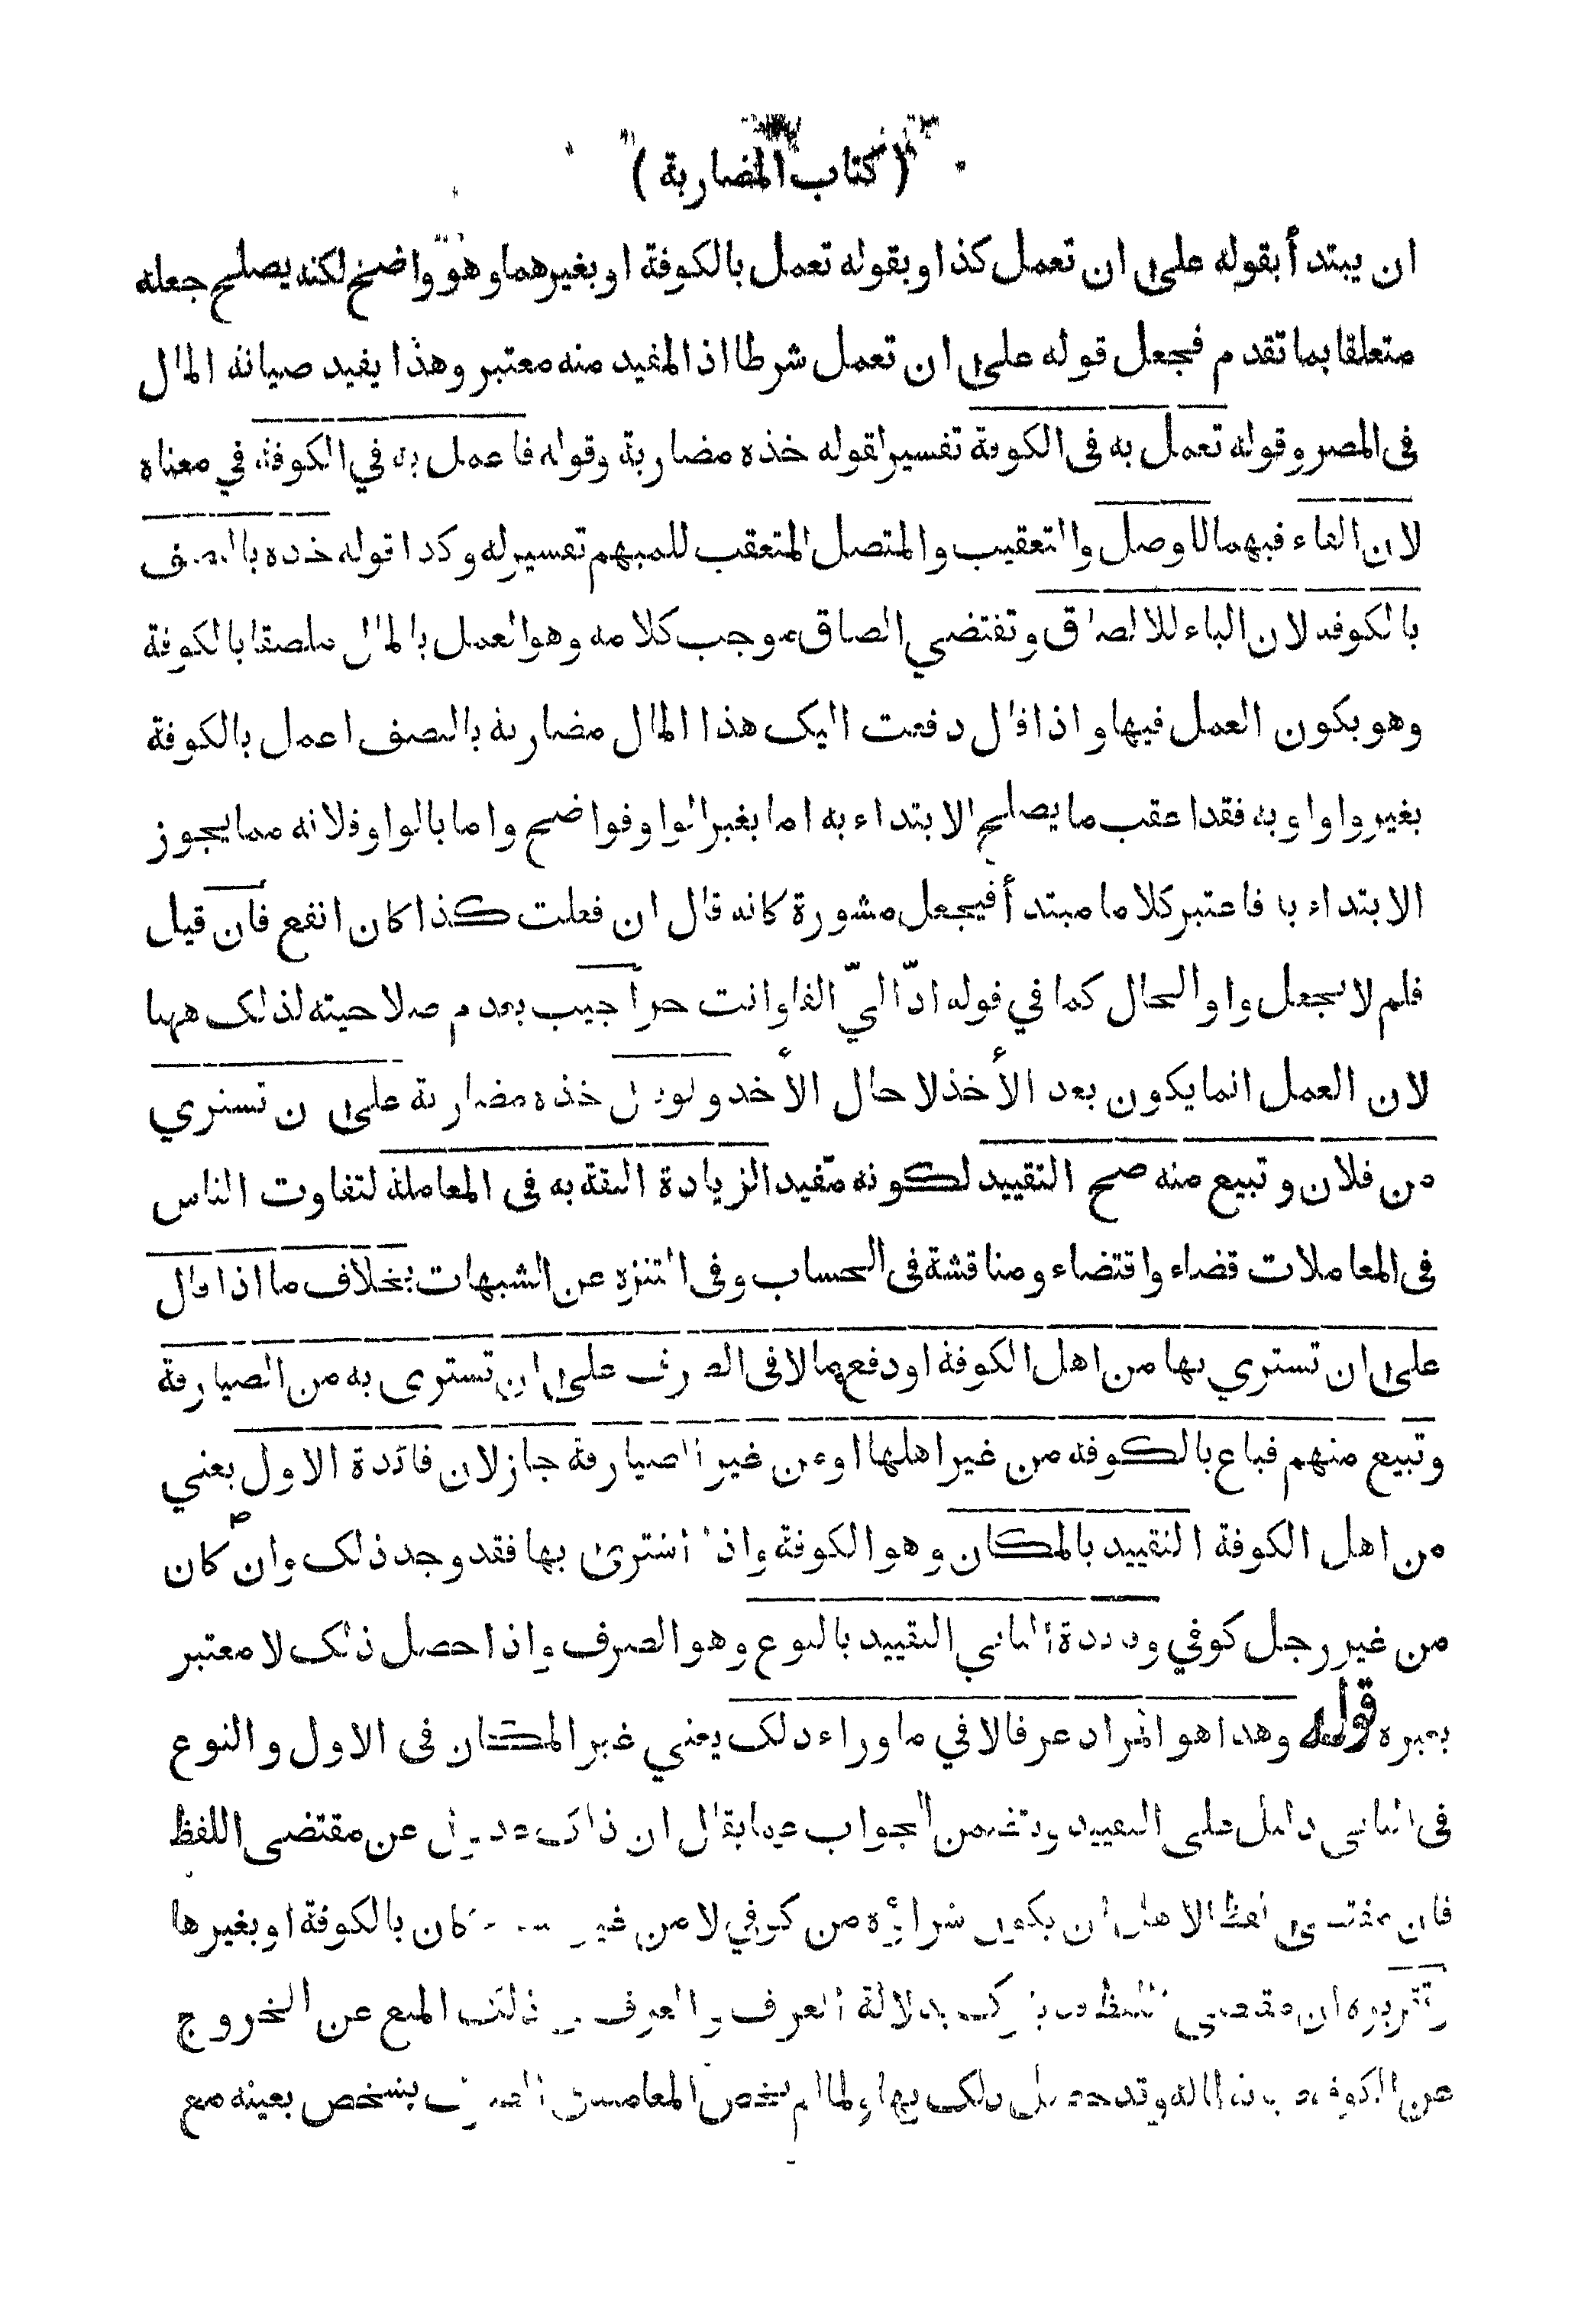 ( كتاب المضاربة )
ان يبتدأ بقوله على ان تعمل كذا وبقوله تعمل بالكوفة او بغيرهما وهو واضح لكنه يصلح جعله
متعلقا بما تقدم فجعل قوله على ان تعمل شرطا اذ المفيد منه معتبر وهذا يفيد صيانة المال
فى المصر وقوله تعمل به فى الكوفة تفسيرا لقوله خذه مضاربة وقوله فاعمل به في الكوفة في معناه
لان الفاء فيهما للوصل والتعقيب والمتصل المتعقب للمبهم تفسير له وكذا قوله خذه بالنصف
بالكوفه لان الباء للالصاق وتقتضي الصاق موجب كلامه وهو العمل بالمال ملصقا بالكوفة
وهو بكون العمل فيها واذا قال دفعت اليك هذا المال مضاربة بالنصف اعمل بالكوفة
بغير واو او به فقد اعقب ما يصلح الابتداء به اما بغير الواو فواضح واما بالواو فلانه مما يجوز
الابتداء بها فاعتبر كلاما مبتدأ فيجعل مشورة كانه قال ان فعلت كذا كان انفع فان قيل
فلم لا يجعل واو الحال كما في قوله ادّ اليّ الفا وانت حر أجيب بعدم صلاحيته لذلك ههنا
لان العمل انما يكون بعد الأخذ لا حال الأخذ ولو قال خذه مضاربة على ان تشتري
من فلان وتبيع منه صح التقييد لكونه مفيد الزيادة الثقة به فى المعاملة لتفاوت الناس
فى المعاملات قضاء واقتضاء ومناقشة فى الحساب وفى التنزه عن الشبهات بخلاف ما اذا قال
على ان تشتري بها من اهل الكوفة او دفع مالا فى الصرف على ان تشترى به من الصيارفة
وتبيع منهم فباع بالكوفه من غير اهلها او من غير الصيارفة جاز لان فائدة الاول يعني
من اهل الكوفة التقييد بالمكان وهو الكوفة واذا اشترى بها فقد وجد ذلك وان كان
من غير رجل كوفي وفائدة الثاني التقييد بالنوع وهو الصرف واذا حصل ذلك لا معتبر
بغيره قوله وهذا هو المراد عرفا لا في ما وراء ذلك يعني غير المكان فى الاول والنوع
فى الثاني دليل على التقييد وتضمن الجواب عما يقال ان ذلك عدول عن مقتضى اللفظ
فان مقتضى لفظ الاهل ان يكون شراؤه من كوفي لا من غير كان بالكوفة او بغيرها
وتقريره ان مقتضى اللفظ يترك بدلالة العرف والعرف في ذلك المنع عن الخروج
عن الكوفة صيانة لماله وقد حصل ذلك بها ولما لم يخص المعامل بشخص بعينه مع